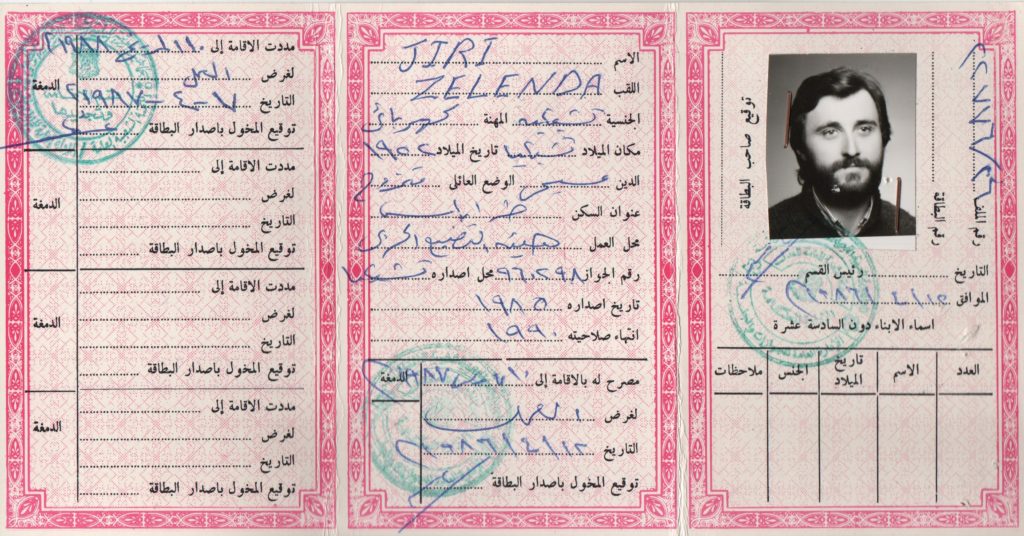 رقم الملف
رقم البطاقة
توقيع صاحب البطاقة
التاريخ رئيس القسم
الموافق ١٢ / ٤ / ٨٦
اسماء الابناء دون السادسة عشرة
العدد الاسم تاريخ الميلاد الجنس ملاحظات
الاسم JIRI
اللقب ZELENDA
الجنسية تشيكية المهنة كهربائي
مكان الميلاد تشيكيا تاريخ الميلاد
الدين مسيحي الوضع العائلي متزوج
عنوان السكن طرابلس
محل العمل هيئة التصنيع الحربي
رقم الجواز محل اصداره تشيكيا
تاريخ اصداره ١٩٨٥
انتهاء صلاحيته ١٩٩٠
مصرح له بالاقامة إلى الدمغة
لغرض العمل
التاريخ ١٢ / ٤ / ٨٦
توقيع المخول باصدار البطاقة
مددت الاقامة إلى الدمغة
لغرض العمل
التاريخ ٧-٤-١٩٨٧
توقيع المخول باصدار البطاقة
مددت الاقامة إلى
لغرض الدمغة
التاريخ
توقيع المخول باصدار البطاقة
مددت الاقامة إلى
لغرض الدمغة
التاريخ
توقيع المخول باصدار البطاقة
مددت الاقامة إلى الدمغة
لغرض
التاريخ
توقيع المخول باصدار البطاقة